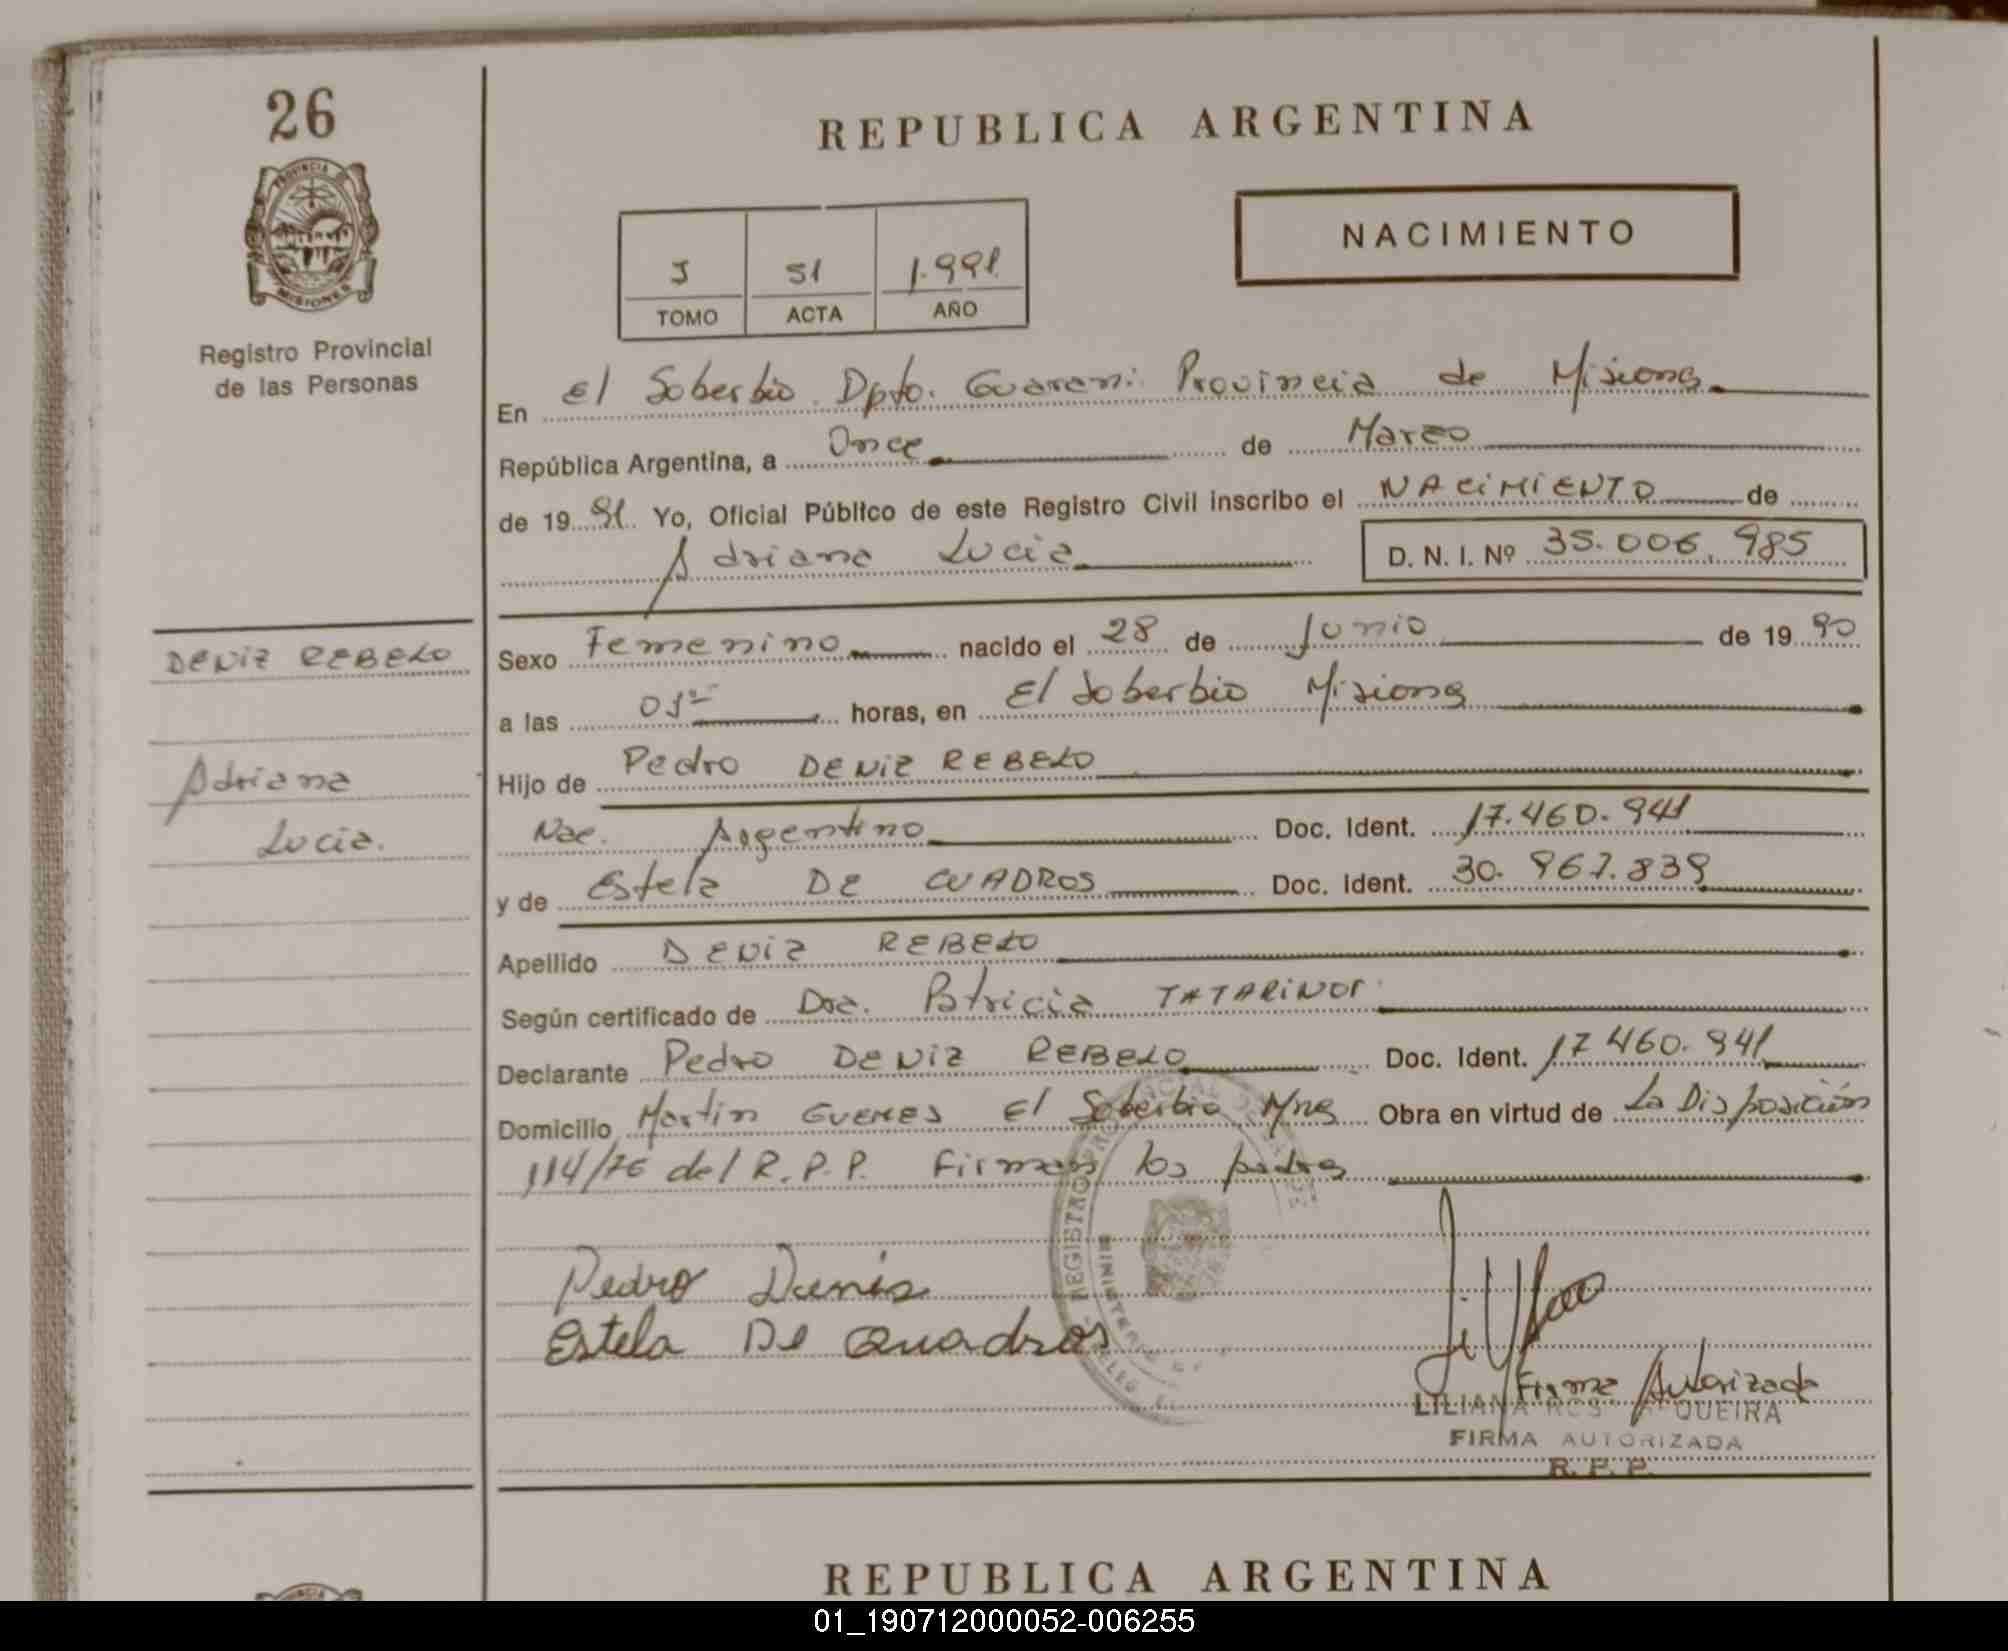 26
PROVINCIA DE
MISIONES
Registro Provincial
de las Personas
REPUBLICA ARGENTINA
NACIMIENTO
J 51 1.991
TOMO ACTA AÑO
En El Soberbio Dpto. Guarani Provincia de Misiones
República Argentina, a Once de Marzo
de 19 91 Yo, Oficial Público de este Registro Civil inscribo el NACIMIENTO de
Adriana Lucia D. N. I. Nº 35.006.985
DENIZ REBELO
Sexo Femenino nacido el 28 de Junio de 19 90
a las horas, en El Soberbio Misiones
Adriana
Lucia.
Hijo de Pedro DENIZ REBELO
Nac. Argentino Doc. Ident. 17.460.941
y de Estela DE CUADROS Doc. Ident. 30.967.839
Apellido DENIZ REBELO
Según certificado de Dra. Patricia TATARINOF
Declarante Pedro DENIZ REBELO Doc. Ident. 17460.941
Domicilio Martin GUEMES El Soberbio Mnes Obra en virtud de La Disposición
114/76 del R.P.P. Firman los padres
Pedro Denis
Estela De Quadros
Firma Autorizada
LILIANA QUEIRA
FIRMA AUTORIZADA
R. P. P.
REPUBLICA ARGENTINA
01_190712000052-006255